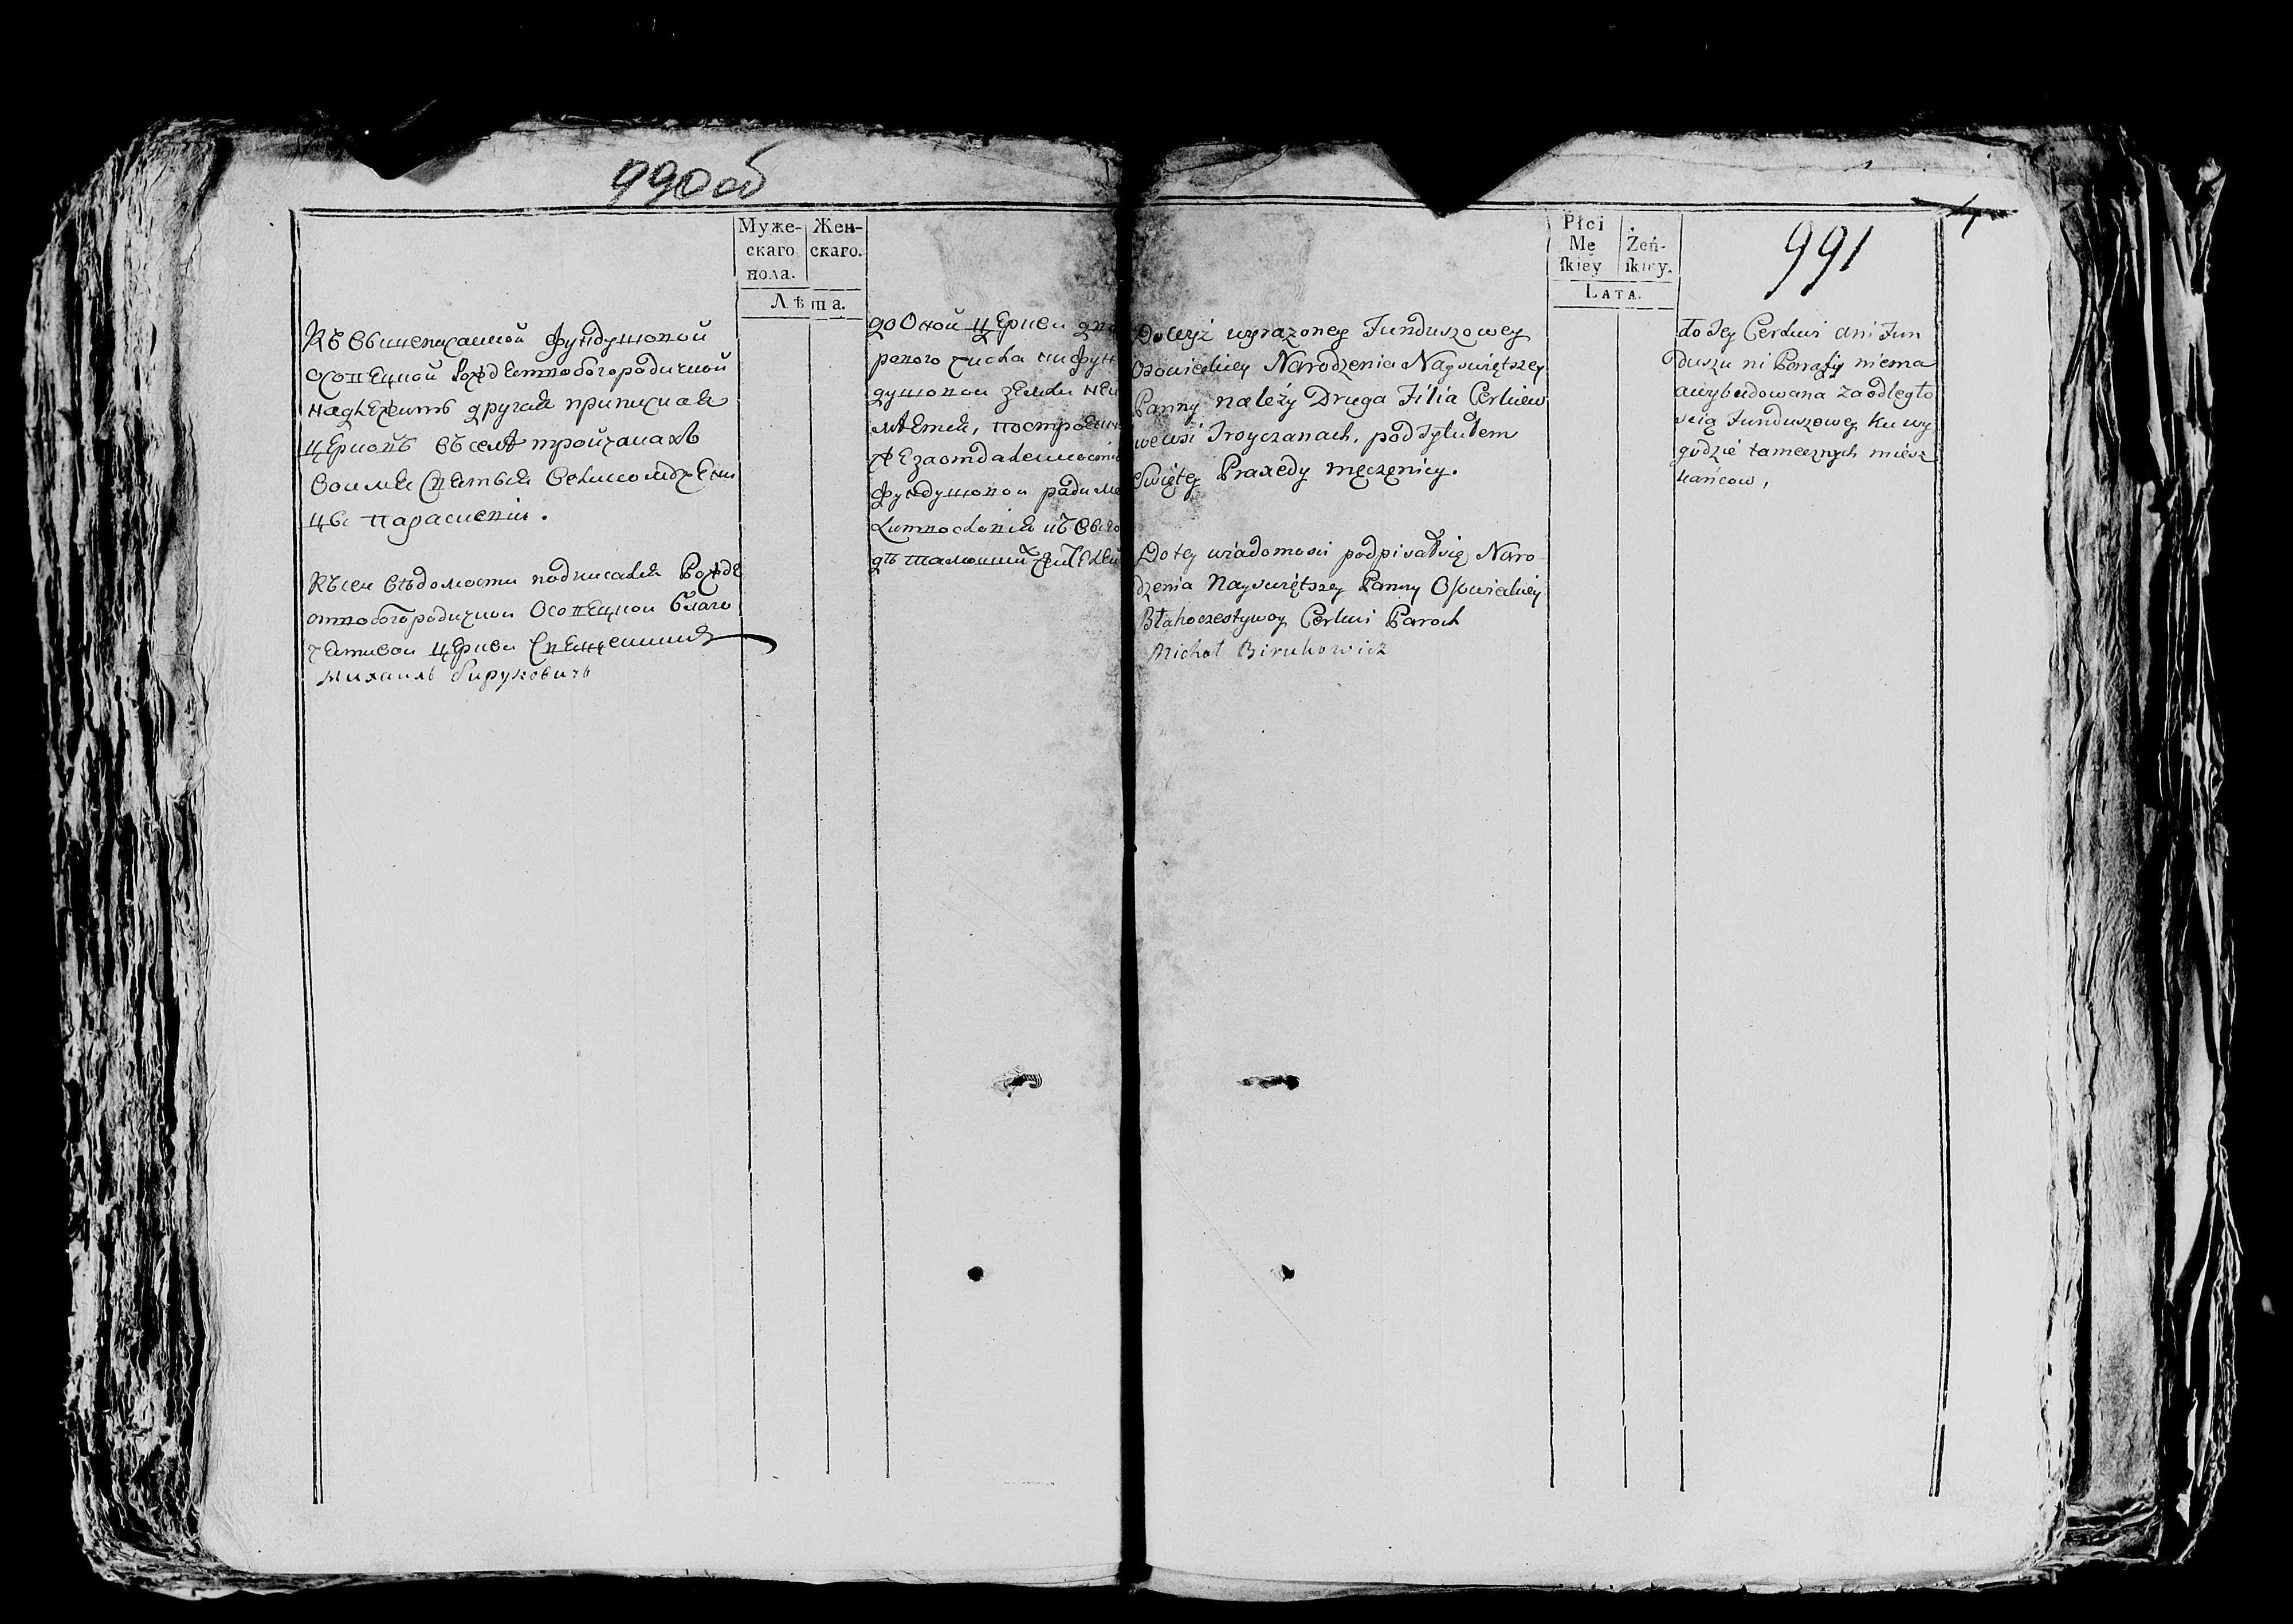 990об
Муже-
скаго
пола.
Жен-
скаго.
Лѣта.
Къ вышеписанной фундушовой
Осовецкой Рождествобогородичной
надлежитъ другая приписная
церковь въ селѣ тройчанахъ
во имя святыя великомученицы
цы Параскевіи.
Къ сей вѣдомости подписался Рожде
ствобогородичной Осовецкой благо
честивой церкви священникъ
михаилъ бируковичь
до Оной церкви
рового числа ни фун
душовой земли не
мѣетъ, построенна
же за отдаленностію
фундушовой ради
дѣ тамошнихъ жителей
991
Płci
Mę
ſkiey
Żeń-
ſkiey.
LATA.
Do teyż wyrazoney Funduszowey
Osowieckiey Narodzenia Nayswiętszey
Panny należy Druga Filia Cerkiew
we wsi Troyczanach, pod Tytułem
Swiętey Praxedy męczenicy.
Do tey wiadomosci podpisał się Naro-
dzenia Nayswiętszey Panny Osowieckiey
Błahoczestywoy Cerkwi Paroch
Michał Birukowicz
do Tey Cerkwi ani Fun
duszu ni Parafij niema
a wybudowana za odległo
scią Funduszowey ku wy
godzie tamecznych miesz
kańcow,